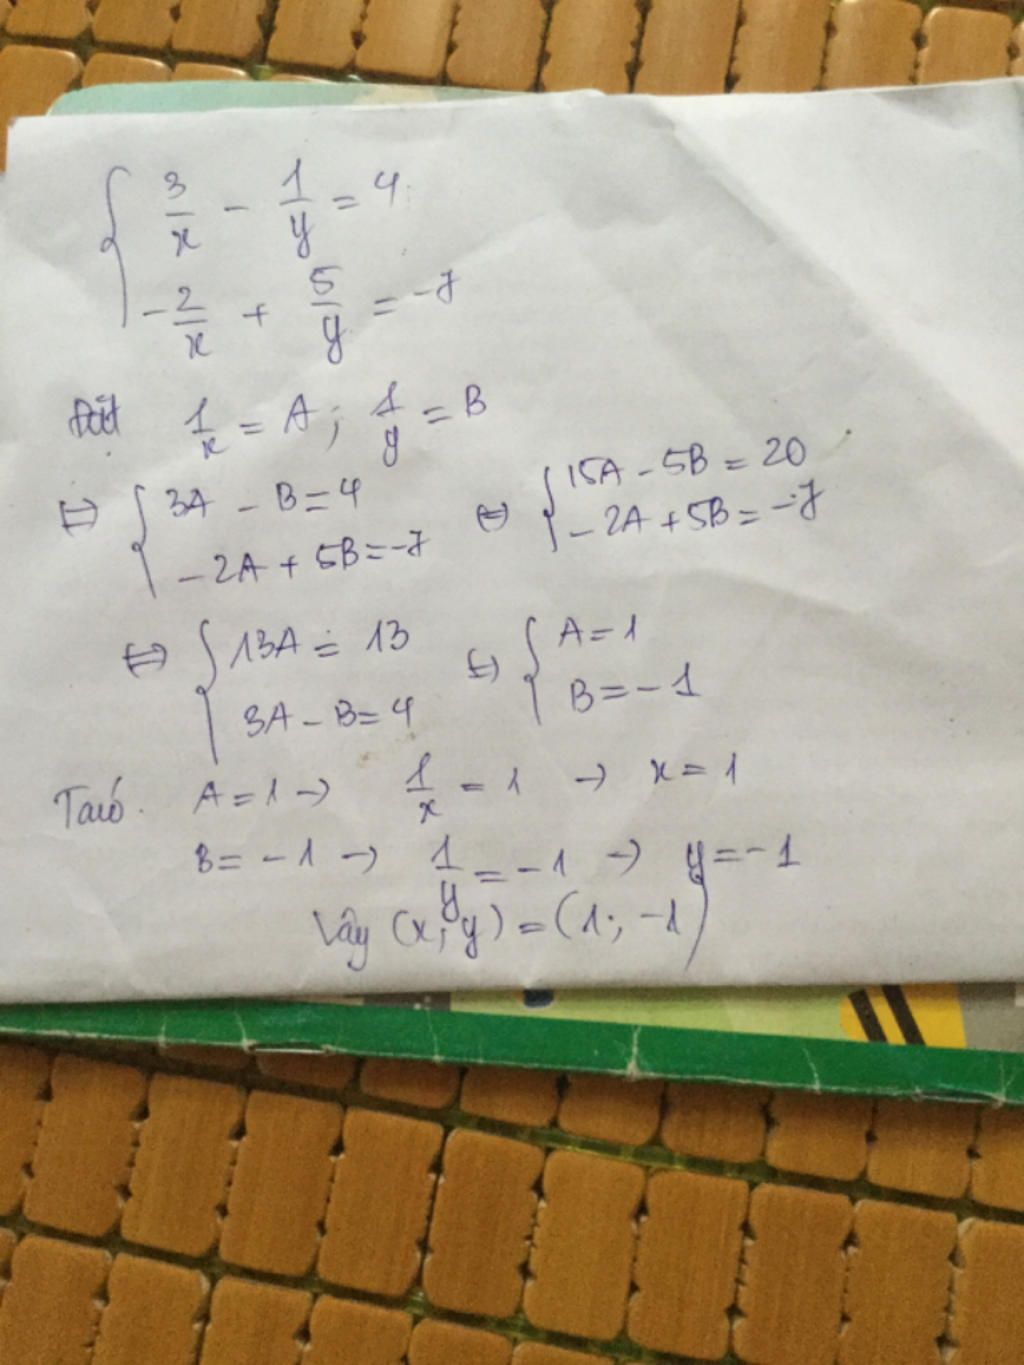 { 3/x - 1/y = 4
-2/x + 5/y = -7
Đặt 1/x = A ; 1/y = B
⇔ { 3A - B = 4 ⇔ { 15A - 5B = 20
-2A + 5B = -7 - 2A + 5B = -7
⇔ { 13A = 13 ⇔ { A = 1
3A - B = 4 B = -1
Ta có A = 1 → 1/x = 1 → x = 1
B = -1 → 1/y = -1 → y = -1
Vậy (x; y) = (1; -1)